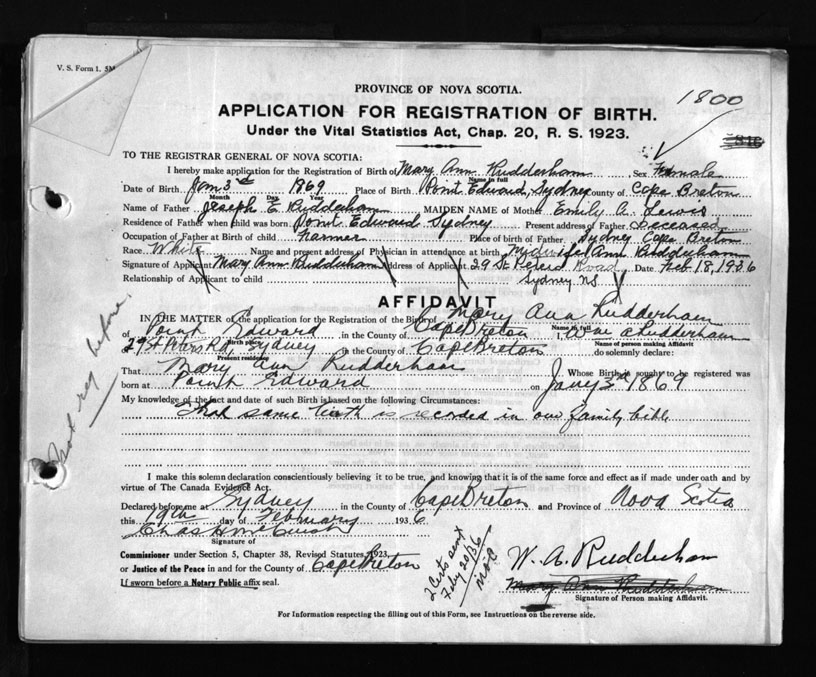 V. S. Form 1. 5M
PROVINCE OF NOVA SCOTIA.
1800
APPLICATION FOR REGISTRATION OF BIRTH.
Under the Vital Statistics Act, Chap. 20, R. S. 1923.
TO THE REGISTRAR GENERAL OF NOVA SCOTIA:
I hereby make application for the Registration of Birth of Mary Ann Rudderham Sex Female
Name in full
Date of Birth Jan 3rd 1869 Place of Birth Point Edward, Sydney County of Cape Breton
Month Day Year
Name of Father Joseph E Rudderham MAIDEN NAME of Mother Emily A. Lewis
Residence of Father when child was born Point Edward Sydney Present address of Father Deceased
Occupation of Father at Birth of child Farmer Place of birth of Father Sydney Cape Breton
Race White Name and present address of Physician in attendance at birth Midwife Ann Rudderham
Signature of Applicant Mary Ann Rudderham Address of Applicant 29 St Peters Road Date Feb 18, 1936
Relationship of Applicant to child Sydney N.S.
AFFIDAVIT
IN THE MATTER of the application for the Registration of the Birth of Mary Ann Rudderham
Name in full
of Point Edward in the County of Cape Breton I, Wm A Rudderham
Birth place Name of person making Affidavit
29 St Peters Rd, Sydney in the County of Cape Breton do solemnly declare:
Present residence
That Mary Ann Rudderham Whose Birth is sought to be registered was
born at Point Edward on Jany 3rd 1869
My knowledge of the fact and date of such Birth is based on the following Circumstances:
That same birth is recorded in our family bible
Not reg before
I make this solemn declaration conscientiously believing it to be true, and knowing that it is of the same force and effect as if made under oath and by
virtue of The Canada Evidence Act.
Declared before me at Sydney in the County of Cape Breton and Province of Nova Scotia
this 19th day of February 1936
Signature of
Commissioner under Section 5, Chapter 38, Revised Statutes, 1923,
or Justice of the Peace in and for the County of Cape Breton
If sworn before a Notary Public affix seal.
2 Certs sent
Feby 20/36
W. A. Rudderham
Mary Ann Rudderham
Signature of Person making Affidavit.
For Information respecting the filling out of this Form, see Instructions on the reverse side.